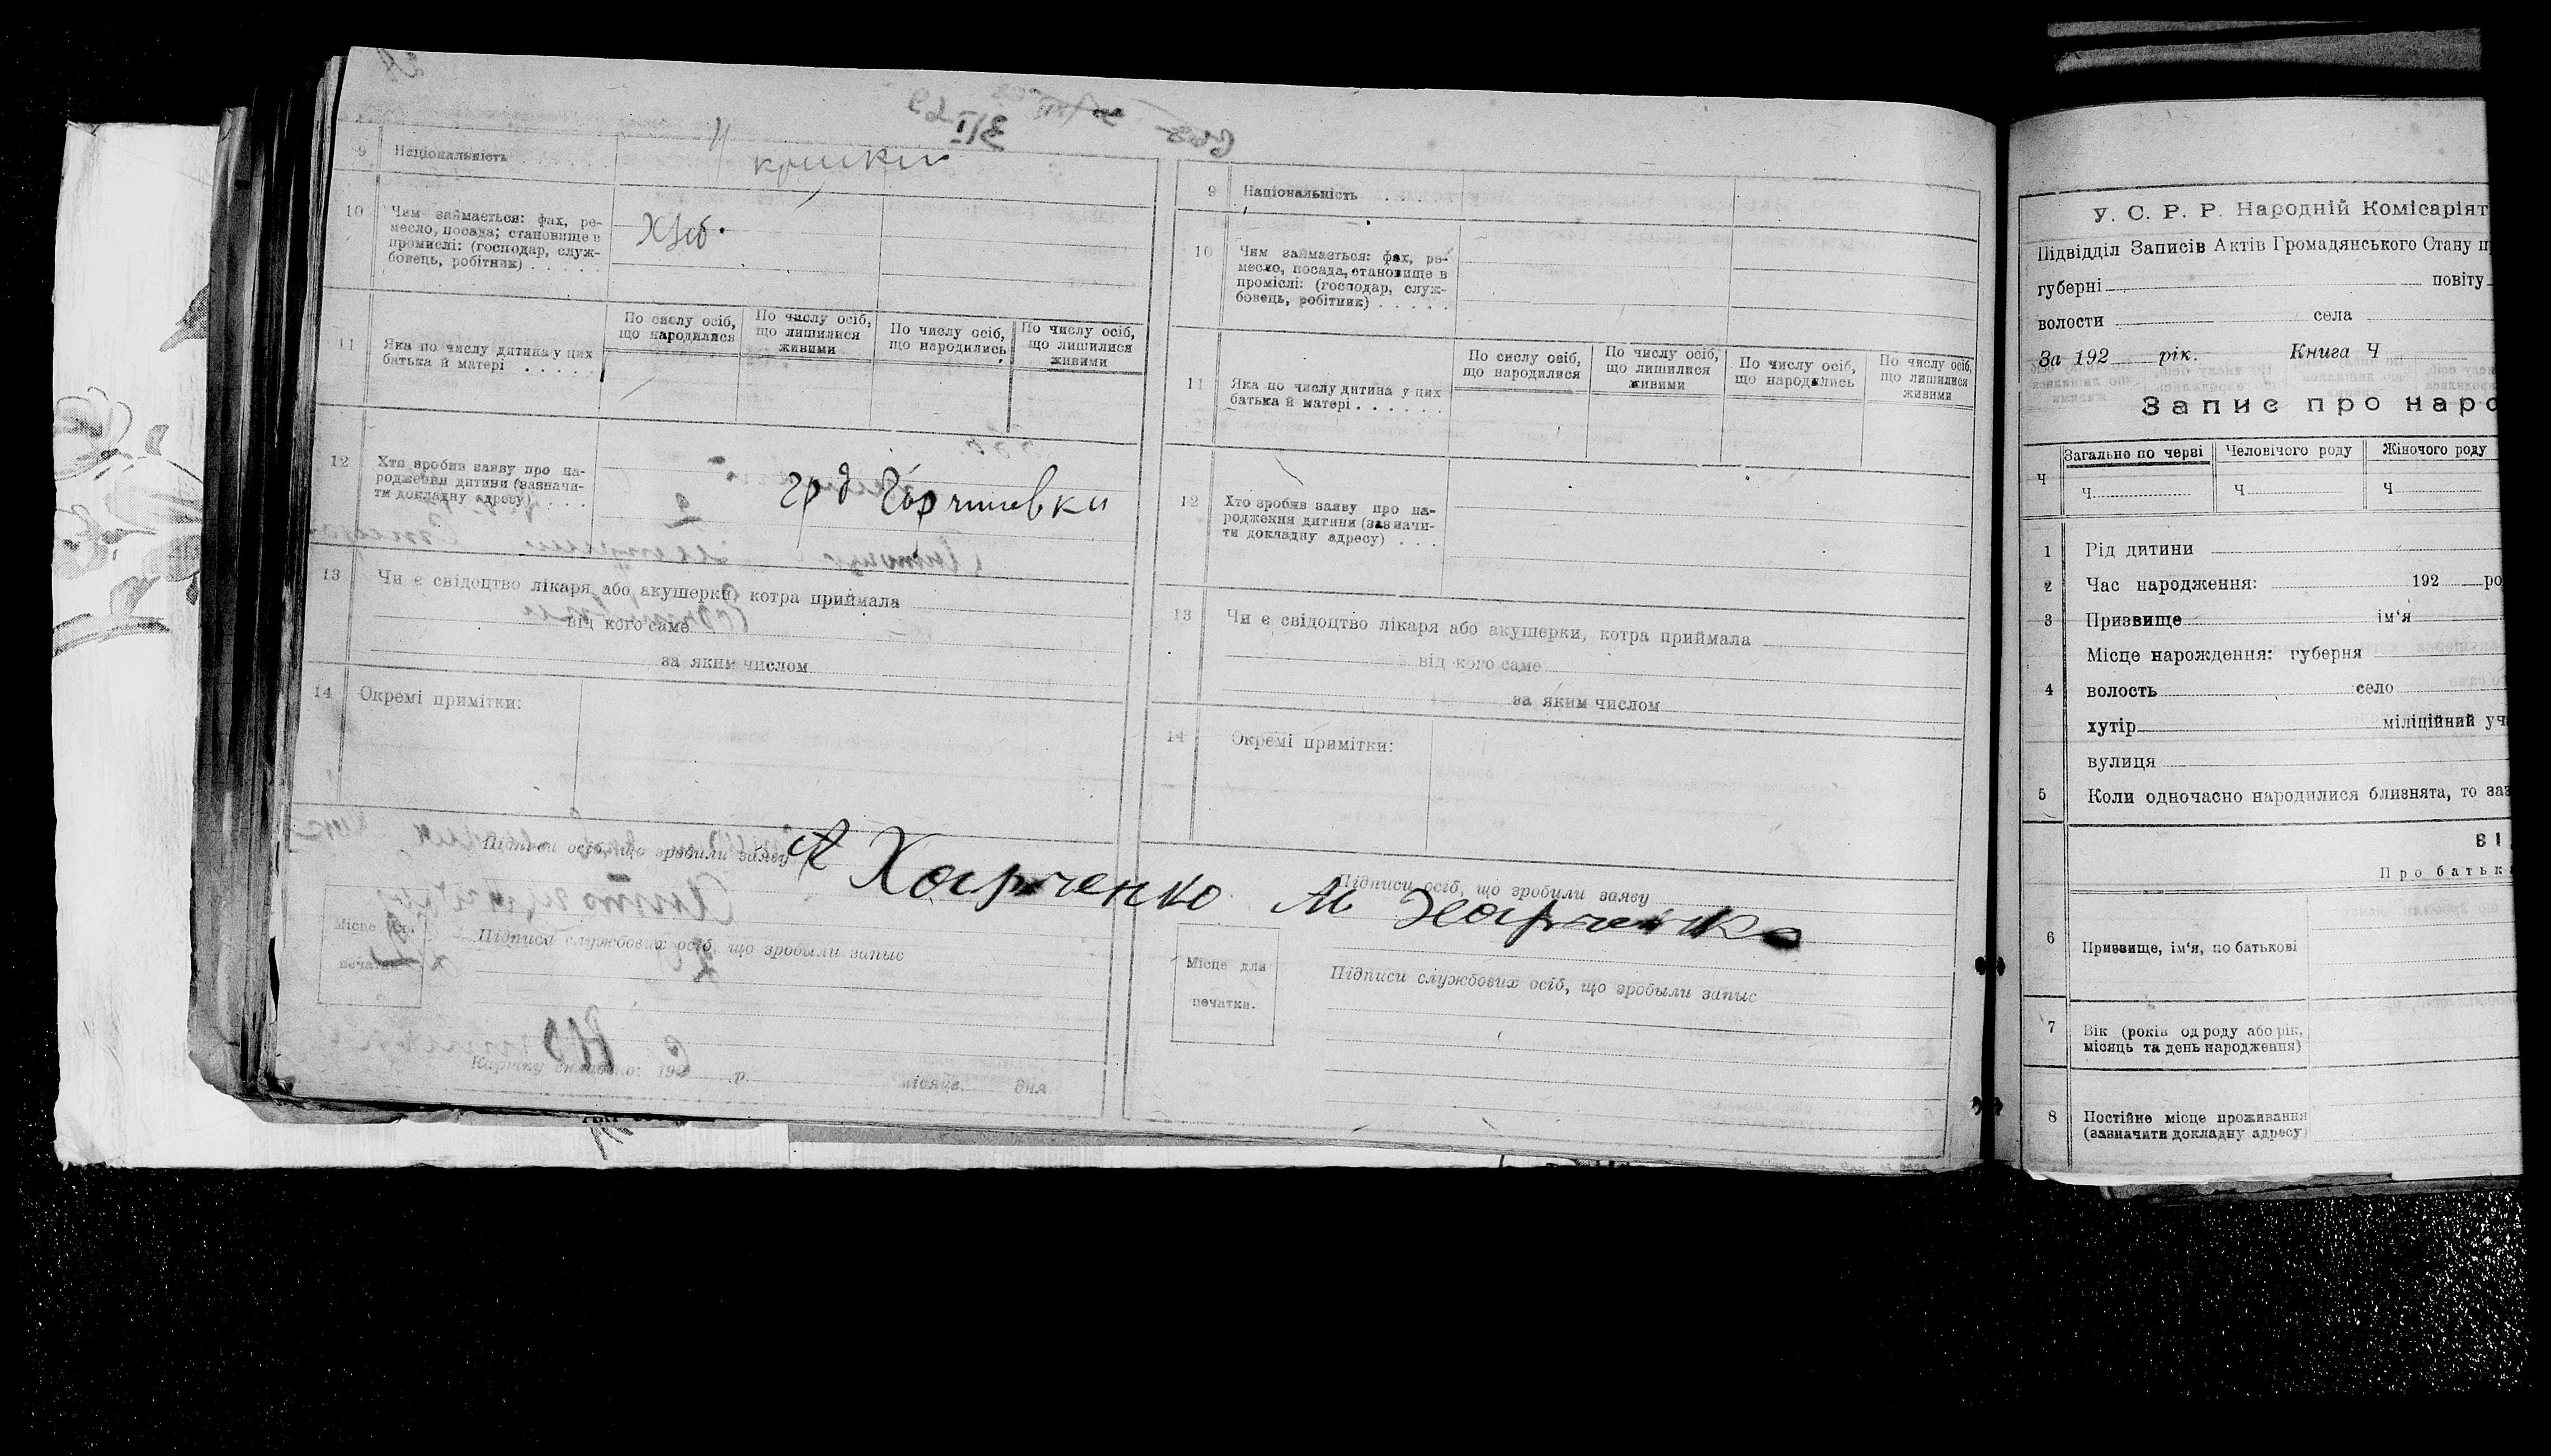 9 Національність
10 Чим займається: фах, ре-
месло, посада; становище в
промислі: (господар, служ-
бовець, робітник)
Хліб.
11 Яка по числу дитина у цих
батька й матері
По числу осіб,
що народилися
По числу осіб,
що лишилися
живими
По числу осіб,
що народились
По числу осіб,
що лишилися
живими
12 Хто зробив заяву про на-
родження дитини (зазначи-
ти докладну адресу)
гр д
13 Чи є свідоцтво лікаря або акушерки, котра приймала
від кого саме
за яким числом
14 Окремі примітки:
Підписи осіб, що зробили заяву
А Харченко
Місце для
печатки
Підписи службових осіб, що зробыли запыс
Картку складено: 192 р. місяця. дня
9 Національність
10 Чим займається: фах, ре-
месло, посада, становище в
проміслі: (господар, служ-
бовець, робітник)
11 Яка по числу дитина у цих
батька й матері
По числу осіб,
що народилися
По числу осіб,
що лишилися
живими
По числу осіб,
що народились
По числу осіб,
що лишилися
живими
12 Хто зробив заяву про на-
родження дитини (зазначи-
ти докладну адресу)
13 Чи є свідоцтво лікаря або акушерки, котра приймала
від кого саме
за яким числом
14 Окремі примітки:
Підписи осіб, що зробили заяву
М Харченко
Місце для
печатки.
Підписи службових осіб, що зробыли запыс
У. С. Р. Р. Народній Комісаріят
Підвідділ Записів Актів Громадянського Стану п
губерні повіту
волости села
За 192 рік. Книга Ч
Запис про наро
Ч Загальне по черзі Человічого роду Жіночого роду
Ч Ч Ч
1 Рід дитини
2 Час народження: 192 ро
3 Призвище ім‘я
4 Місце нарождення: губерня
волость село
хутір міліційний уч
вулиця
5 Коли одночасно народилися близнята, то заз
ВІ
Про батьк
6 Призвище, ім‘я, по батькові
7 Вік (років од роду або рік,
місяць та день народження)
8 Постійне місце проживання
(зазначити докладну адресу)